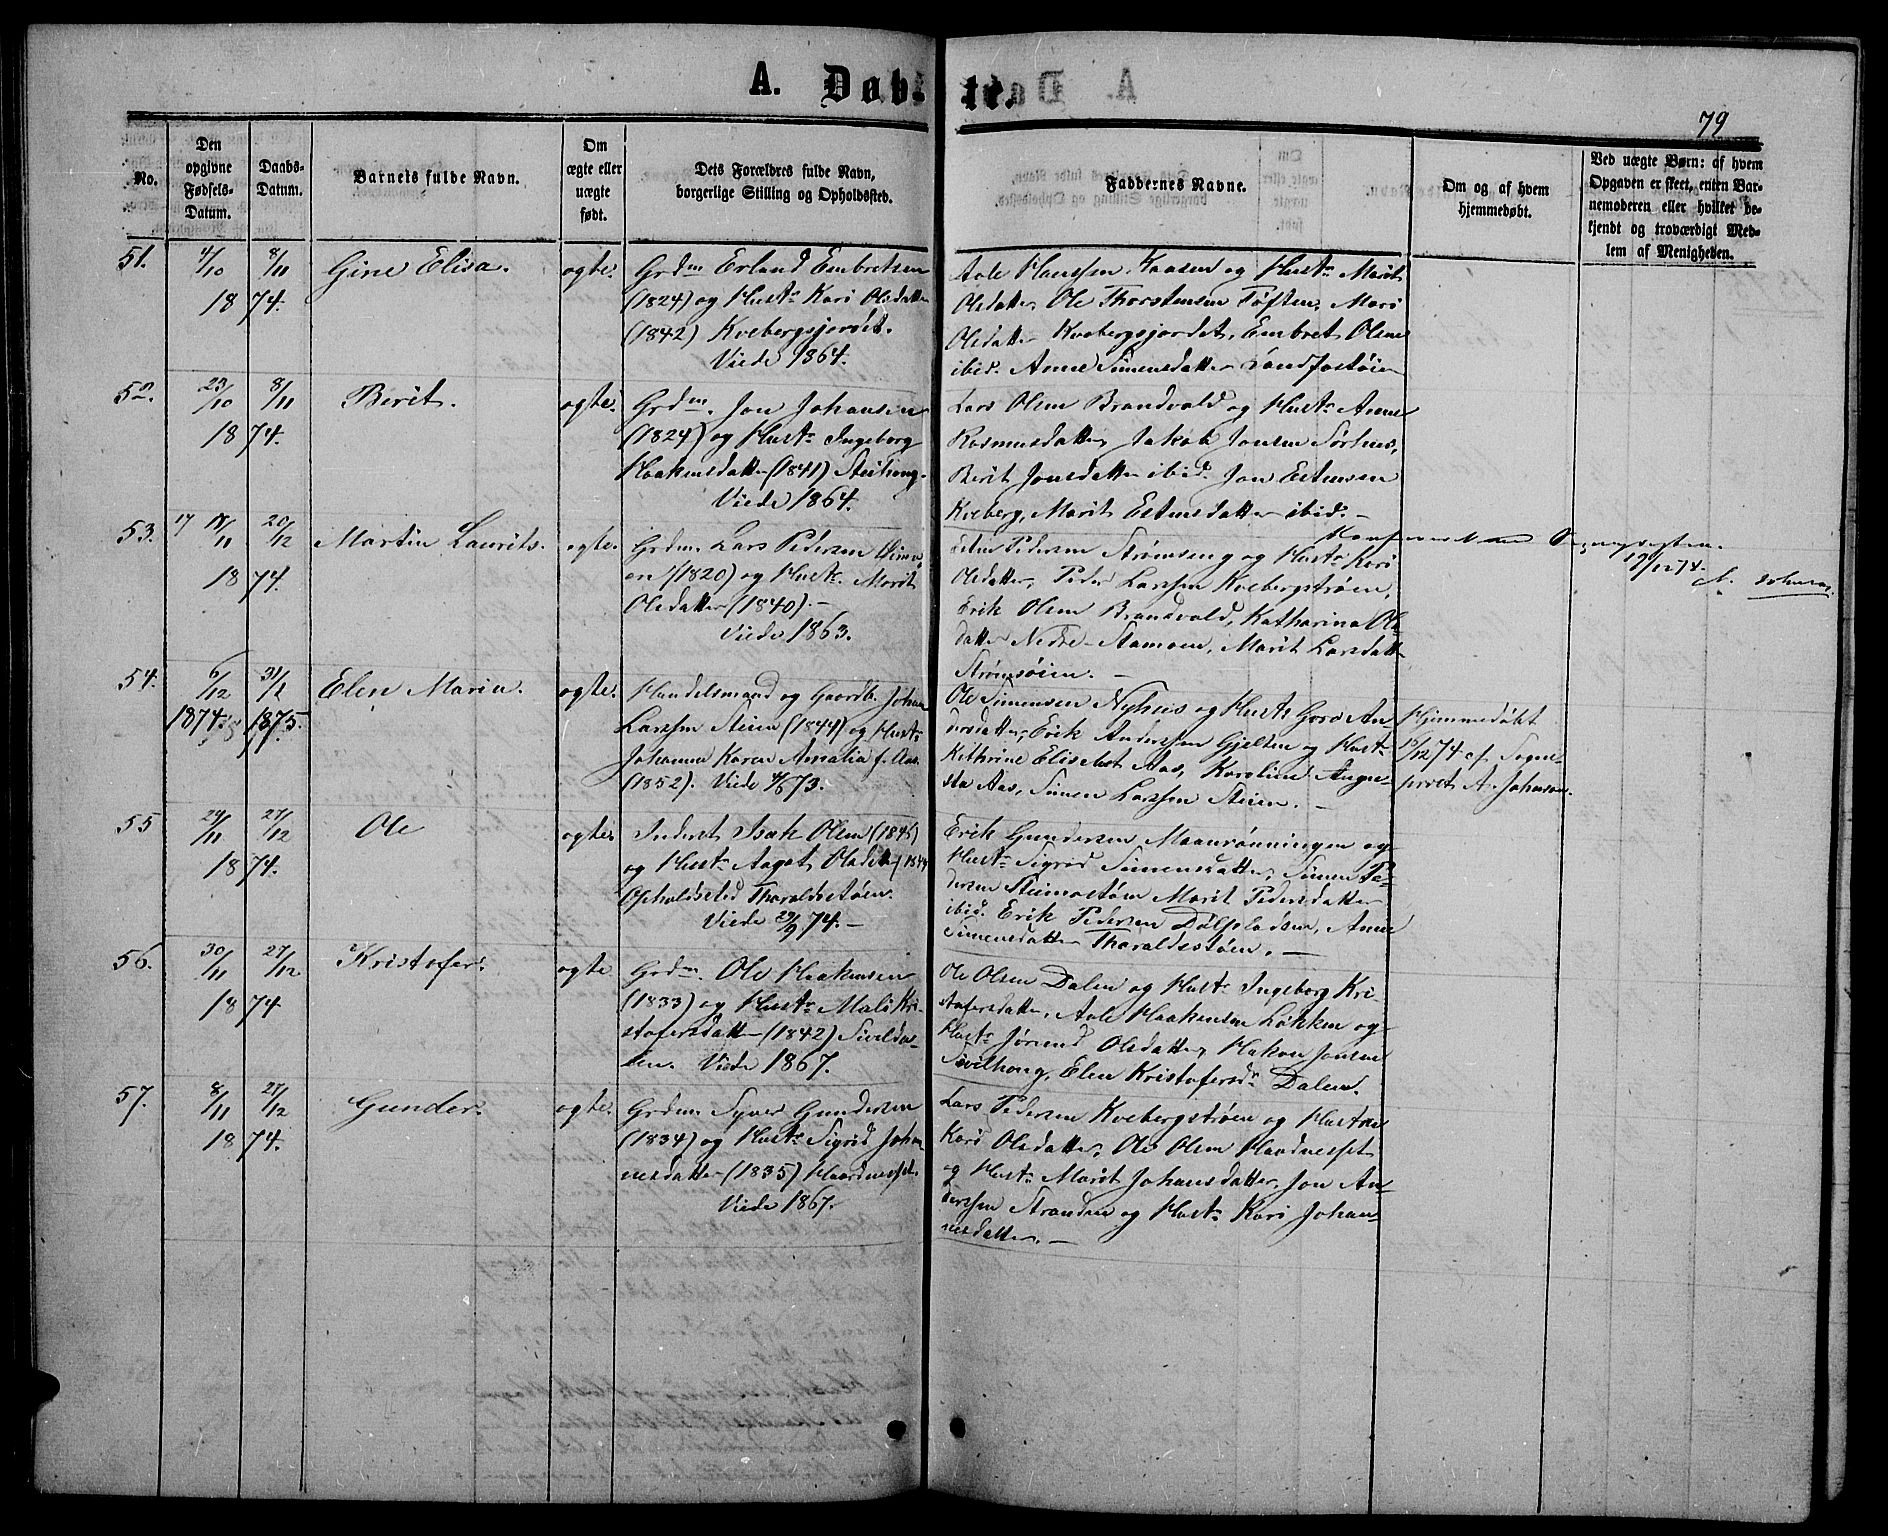 A. Døbte.
79
No.
Den opgivne Fødsels-Datum.
Daabs-Datum.
Barnets fulde Navn.
Om ægte eller uægte født.
Dets Forældres fulde Navn, borgerlige Stilling og Opholdssted.
Faddernes Navne.
Om og af hvem hjemmedøbt.
Ved uægte Børn: af hvem Opgaven er skeet, enten Barnemoderen eller hvilket bekjendt og troværdigt Medlem af Menigheden.
51. 4/10 8/11 Gine Elisa. ægte.
18 74.
Grdm Erland Embretsen
(1824) og Hustr Kari Olsdatter
(1842) Kvebergsjordet.
Viede 1864.
Aole Hanssen Kaasen og Hustr Marit
Olsdatter, Ole Thorstensen Tøften, Mari
Olsdatter Kvebergsjordet, Embret Olsen
ibid. Anne Simensdatter
52. 23/10 8/11 Berit. ægte.
18 74.
Grdm. Jon Johansen
(1824) og Hustr Ingeborg
Haakensdatter (1841)
Viede 1864.
Lars Olsen Brandvold og Hustr Anne
Rasmusdatter, Jakob Jonsen Sørhus,
Berit Jonsdatter ibid. Jon Estensen
Kveberg, Marit Estensdatter ibid. –
53. 17 18/11 20/12 Martin Laurits. ægte.
18 74.
Grdm. Lars Pedersen
(1820) og Hustr. Marit
Olsdatter (1840). –
Viede 1863.
Pedersen Strømseng og Hustr Kari
Olsdatter, Peder Larssen Kvebergstrøen,
Erik Olsen Brandvold, Katharina Ols-
datter Nedre-Stamoen, Marit Larsdatter
Strømsøien. –
19/12 74.
54. 6/12 31/1 Elen Maria. ægte.
1874. 1875.
Handelsmand og Gaardb. Johan
Larssen Steien (1844) og Hustr
Johanna Karen Amalia f. Aas
(1852). Viede 4/8 73.
Ole Simensen Nyhus og Hustr Goro An-
dersdatter, Erik Anderssen Gjelten og Hustr
Kathrine Elisabet Aas, Karoline Augu-
sta Aas, Simen Larssen Steien. –
Hjemmedøbt
15/12 74 af Sogne-
prest A. Johnson.
55 24/11 27/12 Ole ægte.
18 74.
Inderst Isak Olsen (1845)
og Hustr Aagot Olsdatter (1844
Opholdssted Tharaldsstøen.
Viede 29/9 74. –
Erik Gundersen Moanrønningen og
Hustr Sigrid Simensdatter, Simen Pe-
dersen Steimostøen Marit Pedersdatter
ibid. Erik Pedersen Dølpladsen, Anne
Simensdatter Tharaldsstøen. –
56. 30/11 27/12 Kristofer. ægte
18 74.
Grdm. Ole Haakensen
(1833) og Hustr Mali Kri-
stofersdatter (1842) Sivilda-
len. Viede 1867.
Ole Olsen Dalen og Hustr Ingeborg Kri-
stofersdatter, Aole Haakensen Løkken og
Hustr Jørend Olsdatter, Hakon Jonsen
Sivilhong, Elen Kristofersdr Dalen.
57. 8/11 27/12 Gunder. ægte.
18 74.
Grdm. Syver Gundersen
(1834) og Hustr Sigrid Johan-
nesdatter (1835) Haardnesset.
Viede 1867.
Lars Pedersen Kvebergstrøen og Hustru
Kari Olsdatter, Ole Olsen Haardnesset
og Hustr Marit Johansdatter, Jon An-
derssen Stranden og Hustr Kari Johan-
nesdatter. –